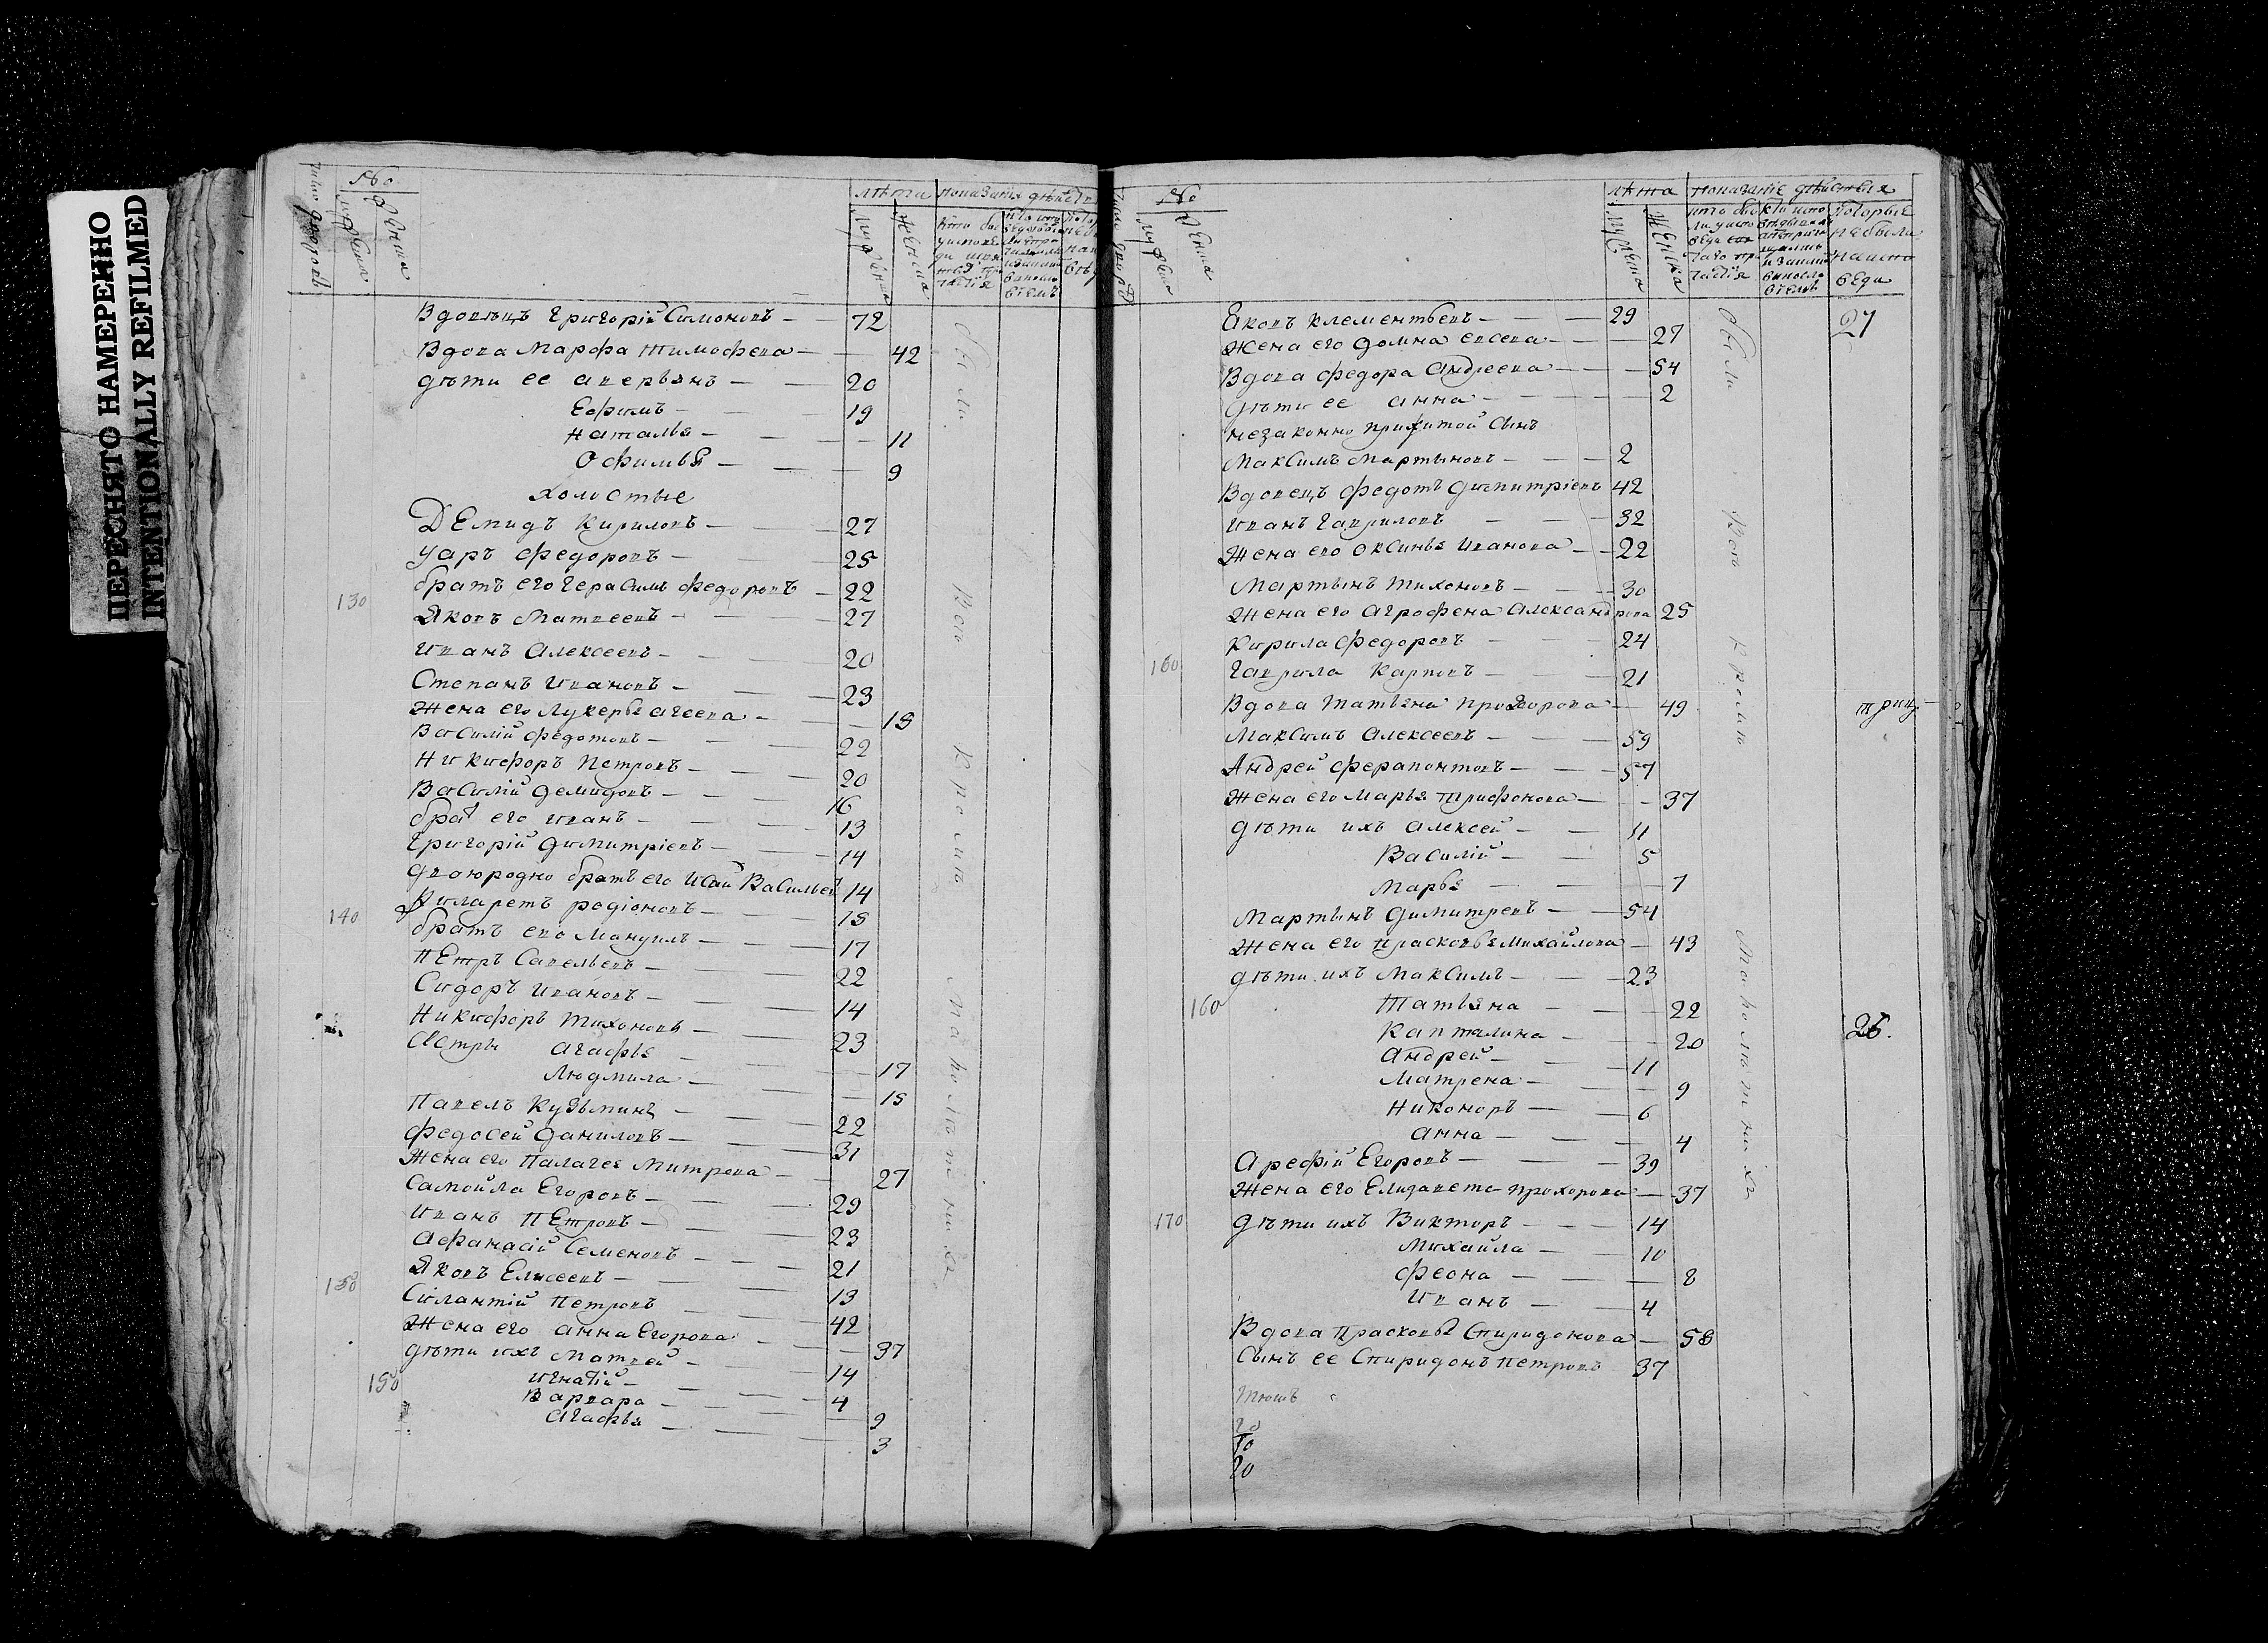 ПЕРЕСНЯТО НАМЕРЕННО
INTENTIONALLY REFILMED
№
лѣта показанія дѣйств
Вдовецъ Григорій Симоновъ — 72
Вдова Марфа Тимофева — 42
дѣти ее аверьянъ — 20
Ефимъ — 19
Наталья — 11
Офимья — 9
холостые
Демидъ Кириловъ — 27
Уаръ Федоровъ — 25
братъ его Герасимъ Федоровъ — 22
130 Яковъ Матвеевъ — 27
Иванъ Алексеевъ — 20
Степанъ Ивановъ — 23
Жена его Лукерья агеева — 18
Василій Федотовъ — 22
Никифоръ Петровъ — 20
Василій Демидовъ — 16
братъ его Иванъ — 13
Григорій Димитріевъ — 14
Двоюродно братъ его Исай Васильевъ 14
140 Филаретъ родіоновъ — 15
братъ его Мануилъ — 17
Петръ Савельевъ — 22
Сидоръ Ивановъ — 14
Никифоръ Тихоновъ — 23
Сестры агафья — 17
Людмила — 15
Павелъ Кузьминъ — 22
Федосей Даниловъ — 31
Жена его Палагея Митрева — 27
Самойла Егоровъ — 29
Иванъ Петровъ — 23
Афанасій Семеновъ — 21
Яковъ Елисеевъ — 13
150 Силантій Петровъ — 42
Жена его анна Егорова — 37
дѣти ихъ Матвей — 14
150 игнатій — 4
Варвара — 9
агафья — 3
были вси кромѣ малолѣтнихъ
№
лѣта показаніе дѣйствія
Которые
небыли
на исповеди
Яковъ Клементьевъ — 29 27
Жена его Домна евсева — 27
Вдова Федора Андреева — 54
дѣти ее анна — 2
незаконно прижитой сынъ
Максимъ Мартыновъ — 2
Вдовецъ Федотъ Димитріевъ 42
Иванъ Гавриловъ — 32
Жена его Оксинья Иванова — 22
Мартынъ Тихоновъ — 30
Жена его Агрофена Александрова 25
Кирила Федоровъ — 24
160 Гаврила Карповъ — 21
Вдова Татьяна Прохорова — 49
Максимъ Алексеевъ — 59
Андрей Ферапонтовъ — 57
Жена его Марья Трифонова — 37
дѣти ихъ Алексей — 11
Василій — 5
Марья — 7
Мартынъ Димитревъ — 54
Жена его Прасковья Михайлова — 43
дѣти ихъ Максимъ — 23
160 Татьяна — 22
Капталина — 20 26.
Андрей — 11
Матрена — 9
Никоноръ — 6
анна — 4
Арефій Егоровъ — 39
Жена его Елизавета прохорова — 37
170 дѣти ихъ Викторъ — 14
Михайла — 10
Феона — 8
Иванъ — 4
Вдова Прасковья Спиридонова — 58
Сынъ ее Спиридонъ Петровъ 37
были вси кромѣ малолѣтнихъ
20
10
20